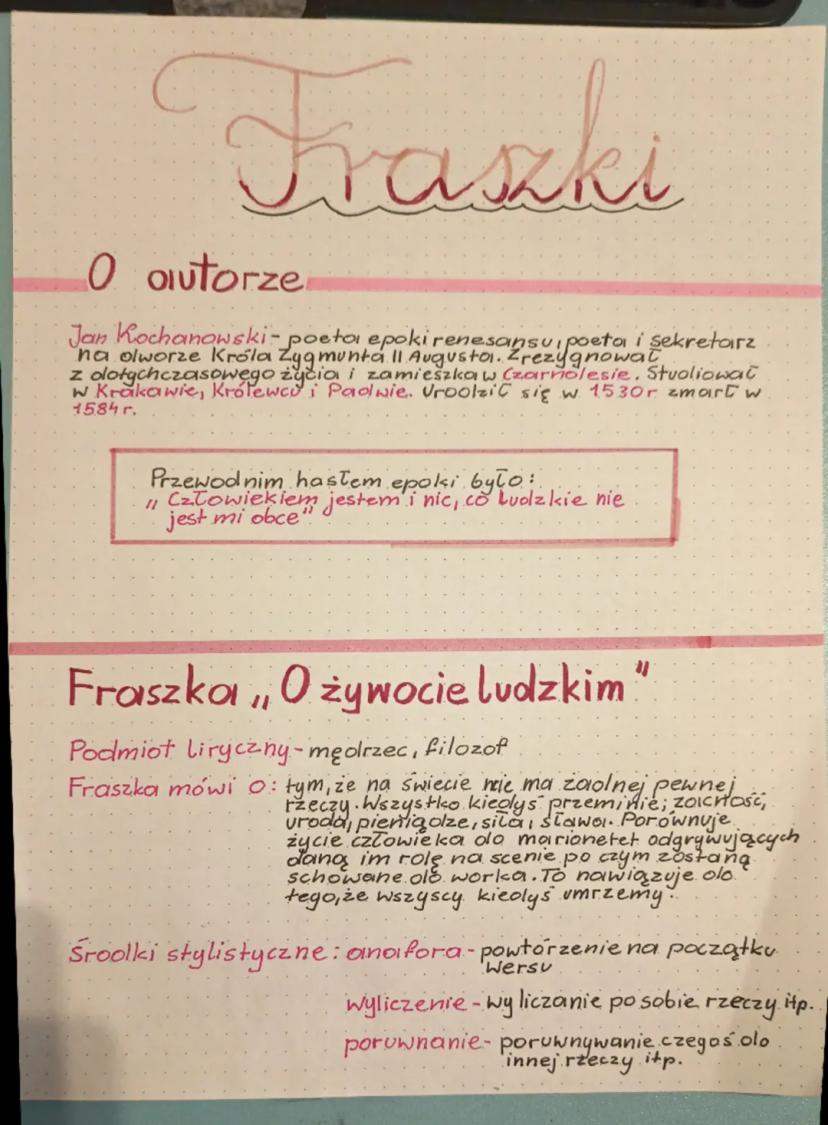 Fraszki
O autorze
Jan Kochanowski - poeta epoki renesansu, poeta i sekretarz
na dworze Króla Zygmunta II Augusta. Zrezygnował
z dotychczasowego życia i zamieszka w Czarnolesie. Studiował
w Krakowie, Królewcu i Padwie. Urodził się w 1530r zmarł w
1584r.
Przewodnim hasłem epoki było:
„Człowiekiem jestem i nic, co ludzkie nie
jest mi obce"
Fraszka „O żywocie ludzkim"
Podmiot liryczny - mędrzec, filozof
Fraszka mówi o: tym, że na świecie nie ma żadnej pewnej
rzeczy. Wszystko kiedyś przeminie; zacność,
uroda, pieniądze, siła, sława. Porównuje
życie człowieka do marionetet odgrywujących
daną im rolę na scenie po czym zostaną
schowane do worka. To nawiązuje do
tego, że wszyscy kiedyś umrzemy.
Środki stylistyczne: anafora - powtórzenie na początku
wersu
wyliczenie - wyliczanie po sobie rzeczy itp.
poruwnanie - poruwnywanie czegoś do
innej rzeczy itp.